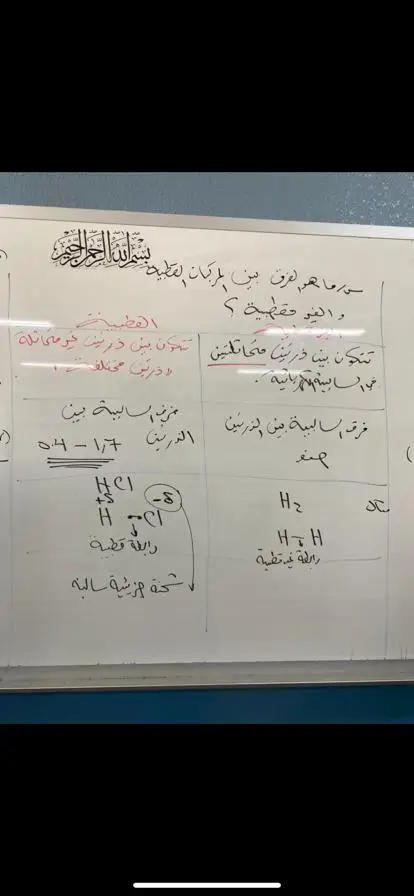 بسم الله الرحمن الرحيم
س/ ما هو الفرق بين المركبات القطبية
والغير قطبية ؟
القطبية
تتكون بين ذرتين متماثلتين
في السالبية الكهربائية.
تتكون بين ذرتين غير متماثلة
ذرتين مختلفة
فرق السالبية بين الذرتين
صفر
فرق السالبية بين
الذرتين 0.4 - 1,7
مثال
H2
H - H
رابطة غير قطبية
HCl
δ+ δ-
H - Cl
رابطة قطبية
شحنة جزيئية سالبة